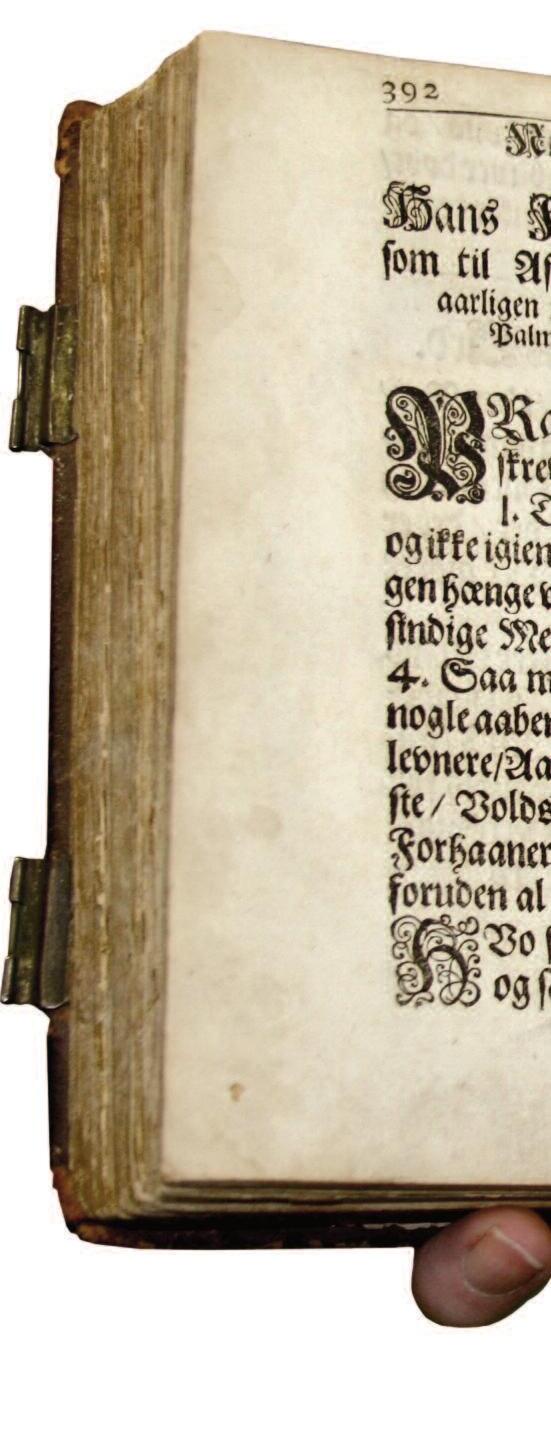 392
Hans
som til
aarligen
skre
1.
og ikke igien
gen hænge v
sindige Me
4. Saa m
nogle aaben
levnere/Aa
ste/ Volds
Forhaaner
foruden al
HVo s
og s